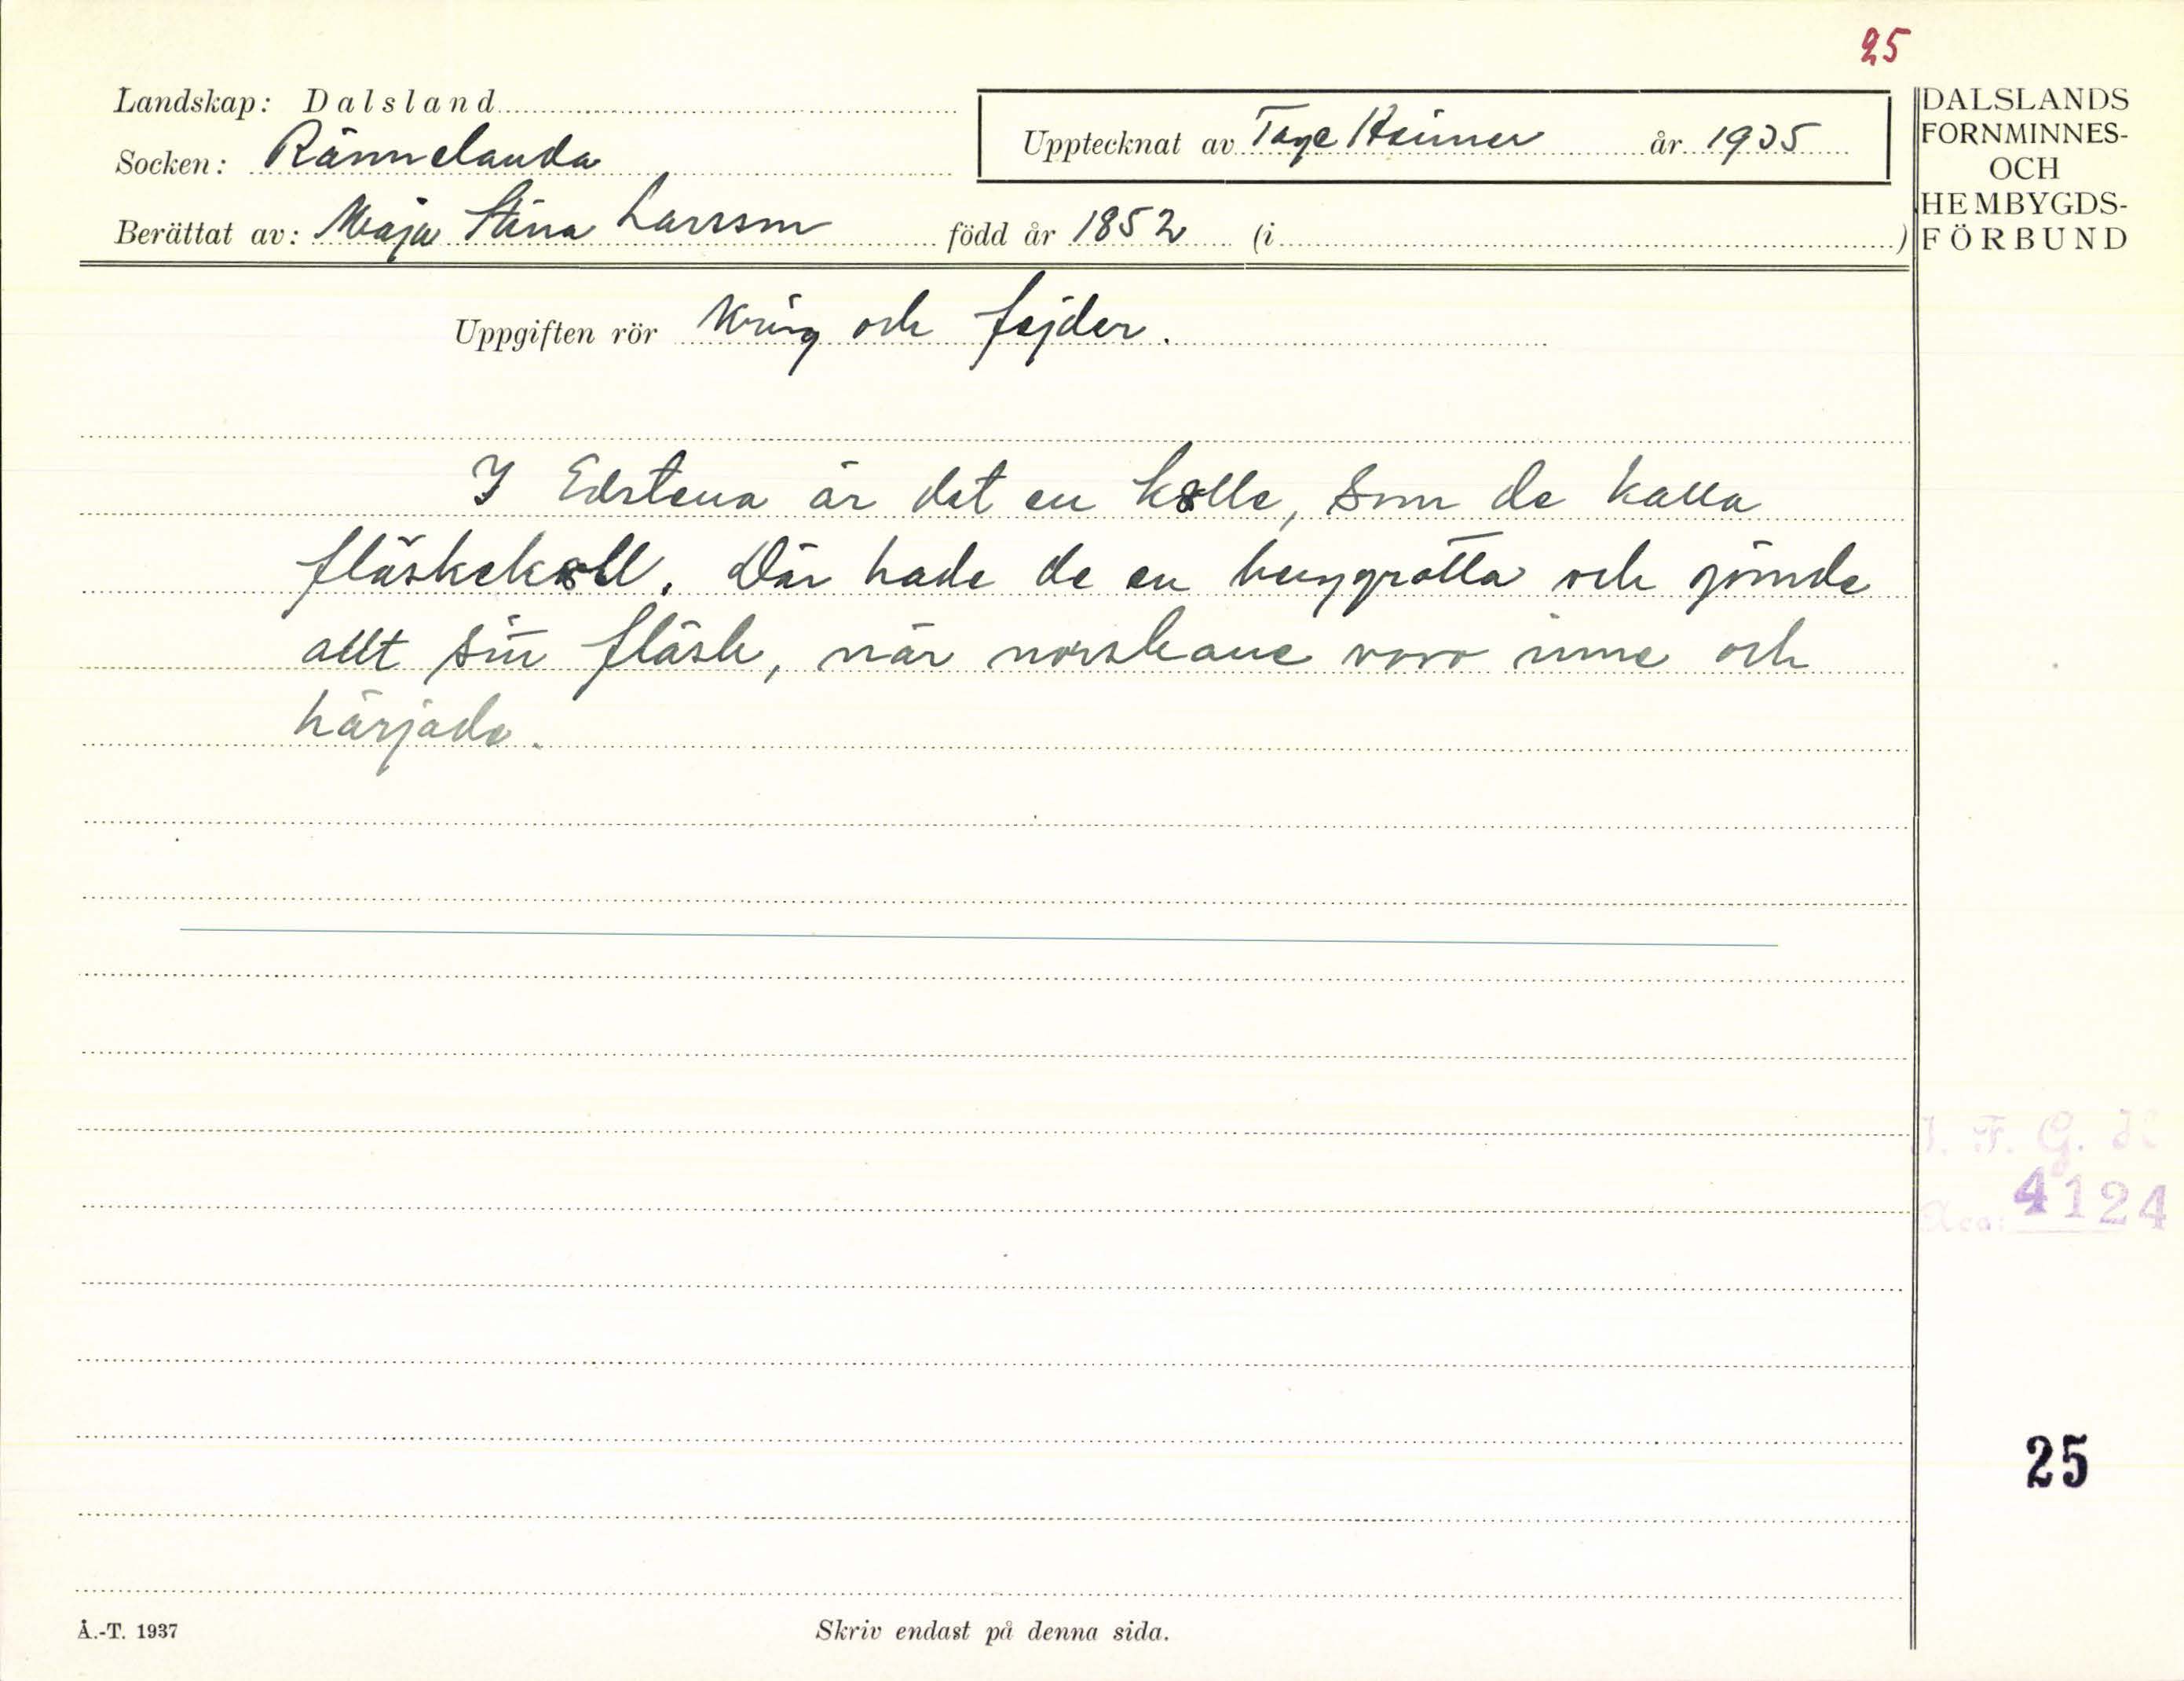 25
Landskap: Dalsland
Socken: Rännelanda
Upptecknat av Tage Heimer år 1935
Berättat av: Maja Stina Larsson född år 1852 (i )
DALSLANDS
FORNMINNES-
OCH
HEMBYGDS-
FÖRBUND
Uppgiften rör Krig och fejder.
I Edstena är det en kolle, som de kalla
fläskekoll. Där hade de en berggrotta och gömde
allt sitt fläsk, när norskane voro inne och
härjade.
I. F. G. H
Acc: 4124
25
Å.-T. 1937
Skriv endast på denna sida.